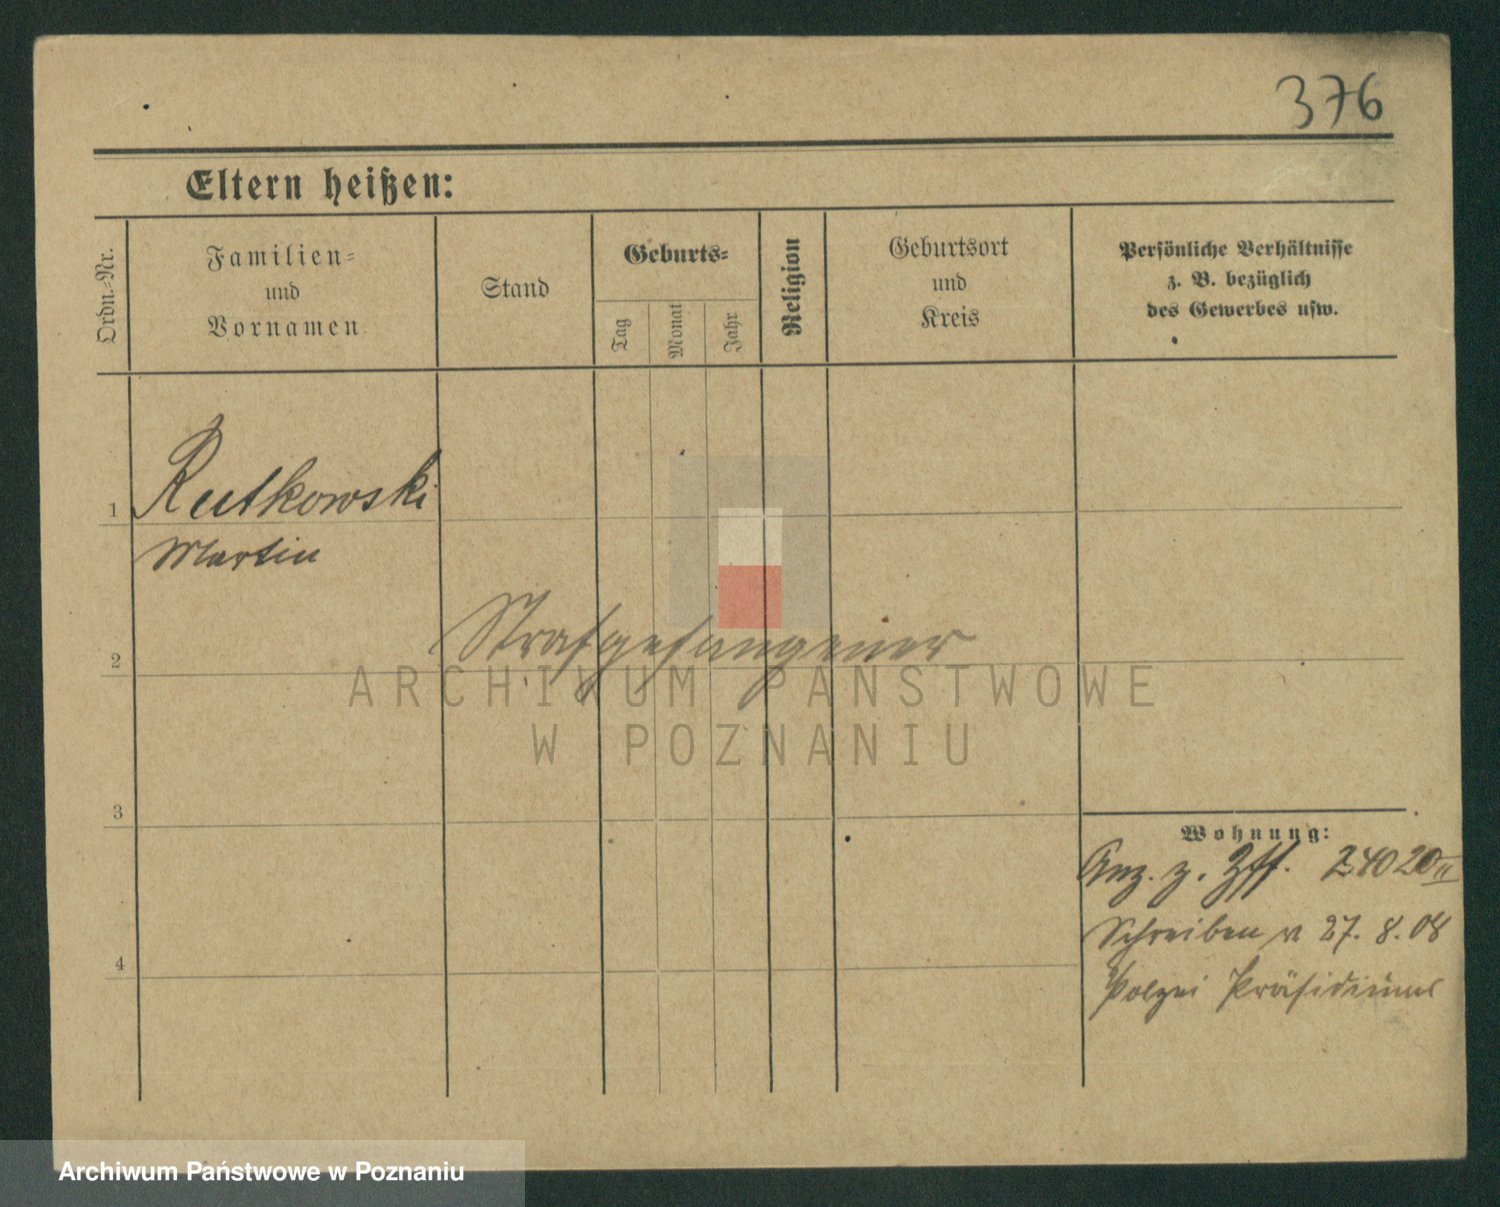 376
Eltern heißen:
Ordn.=Nr.
Familien=
und
Vornamen
Stand
Geburts=
Tag
Monat
Jahr
Religion
Geburtsort
und
Kreis
Persönliche Verhältnisse
z. B. bezüglich
des Gewerbes usw.
1
Rutkowski
Martin
Strafgefangener
2
ARCHIWUM PAŃSTWOWE
W POZNANIU
3
Wohnung:
Anz. z. 2440 20 II
Schreiben v 27. 8. 08
4
Polizei Präsidiums
Archiwum Państwowe w Poznaniu